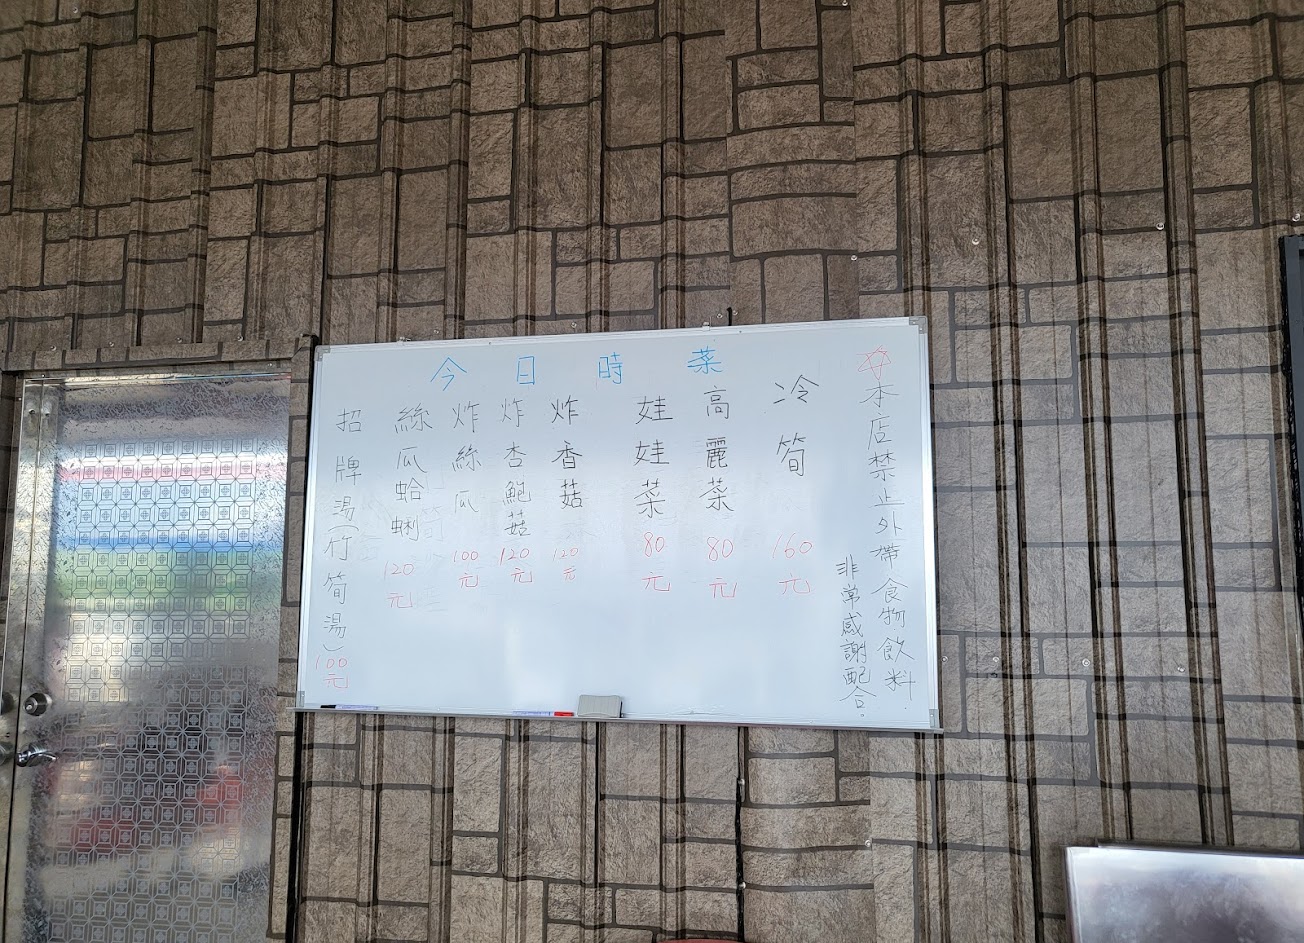 今日時菜
☆本店禁止外帶食物飲料.
非常感謝配合.
冷筍 160元
高麗菜 80元
娃娃菜 80元
炸香菇 120元
炸杏鮑菇 120元
炸絲瓜 100元
絲瓜蛤蜊 120元
招牌湯(竹筍湯) 100元